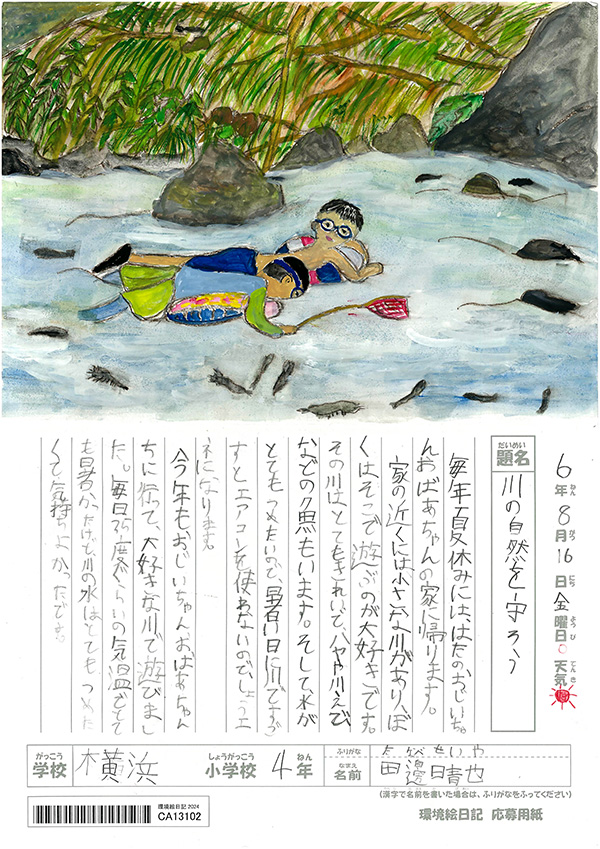 6年8月16日金曜日 天気 晴
ねん がつ にち ようび てんき
だいめい
題名
川の自然を守ろう
毎年夏休みには、はたのおじいちゃ
んおばあちゃんの家に帰ります。
家の近くには小さな川があり、ぼ
くはそこで遊ぶのが大好きです。
その川はとてもきれいで、ハヤや川えび、
などの魚もいます。そして、水が
とてもつめたいので、暑い日に川ですご
すとエアコンを使わないので、しょうエ
ネになります。
今年もおじいちゃんおばあちゃん
ちに行って、大好きな川で遊びまし
た。毎日35度ぐらいの気温でとて
も暑かったけど、川の水はとてもつめた
くて気持ちよかったです。
がっこう しょうがっこう ねん ふりがな せいや
学校 横浜 小学校 4年 なまえ 名前 田邊晴也
(漢字で名前を書いた場合は、ふりがなをふってください)
環境絵日記 2024
CA13102
環境絵日記 応募用紙